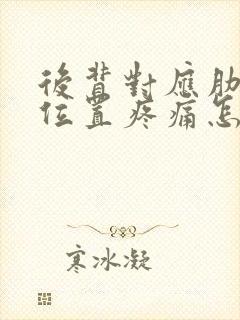 後背對應肋
位置疼痛怎
寒冰凝